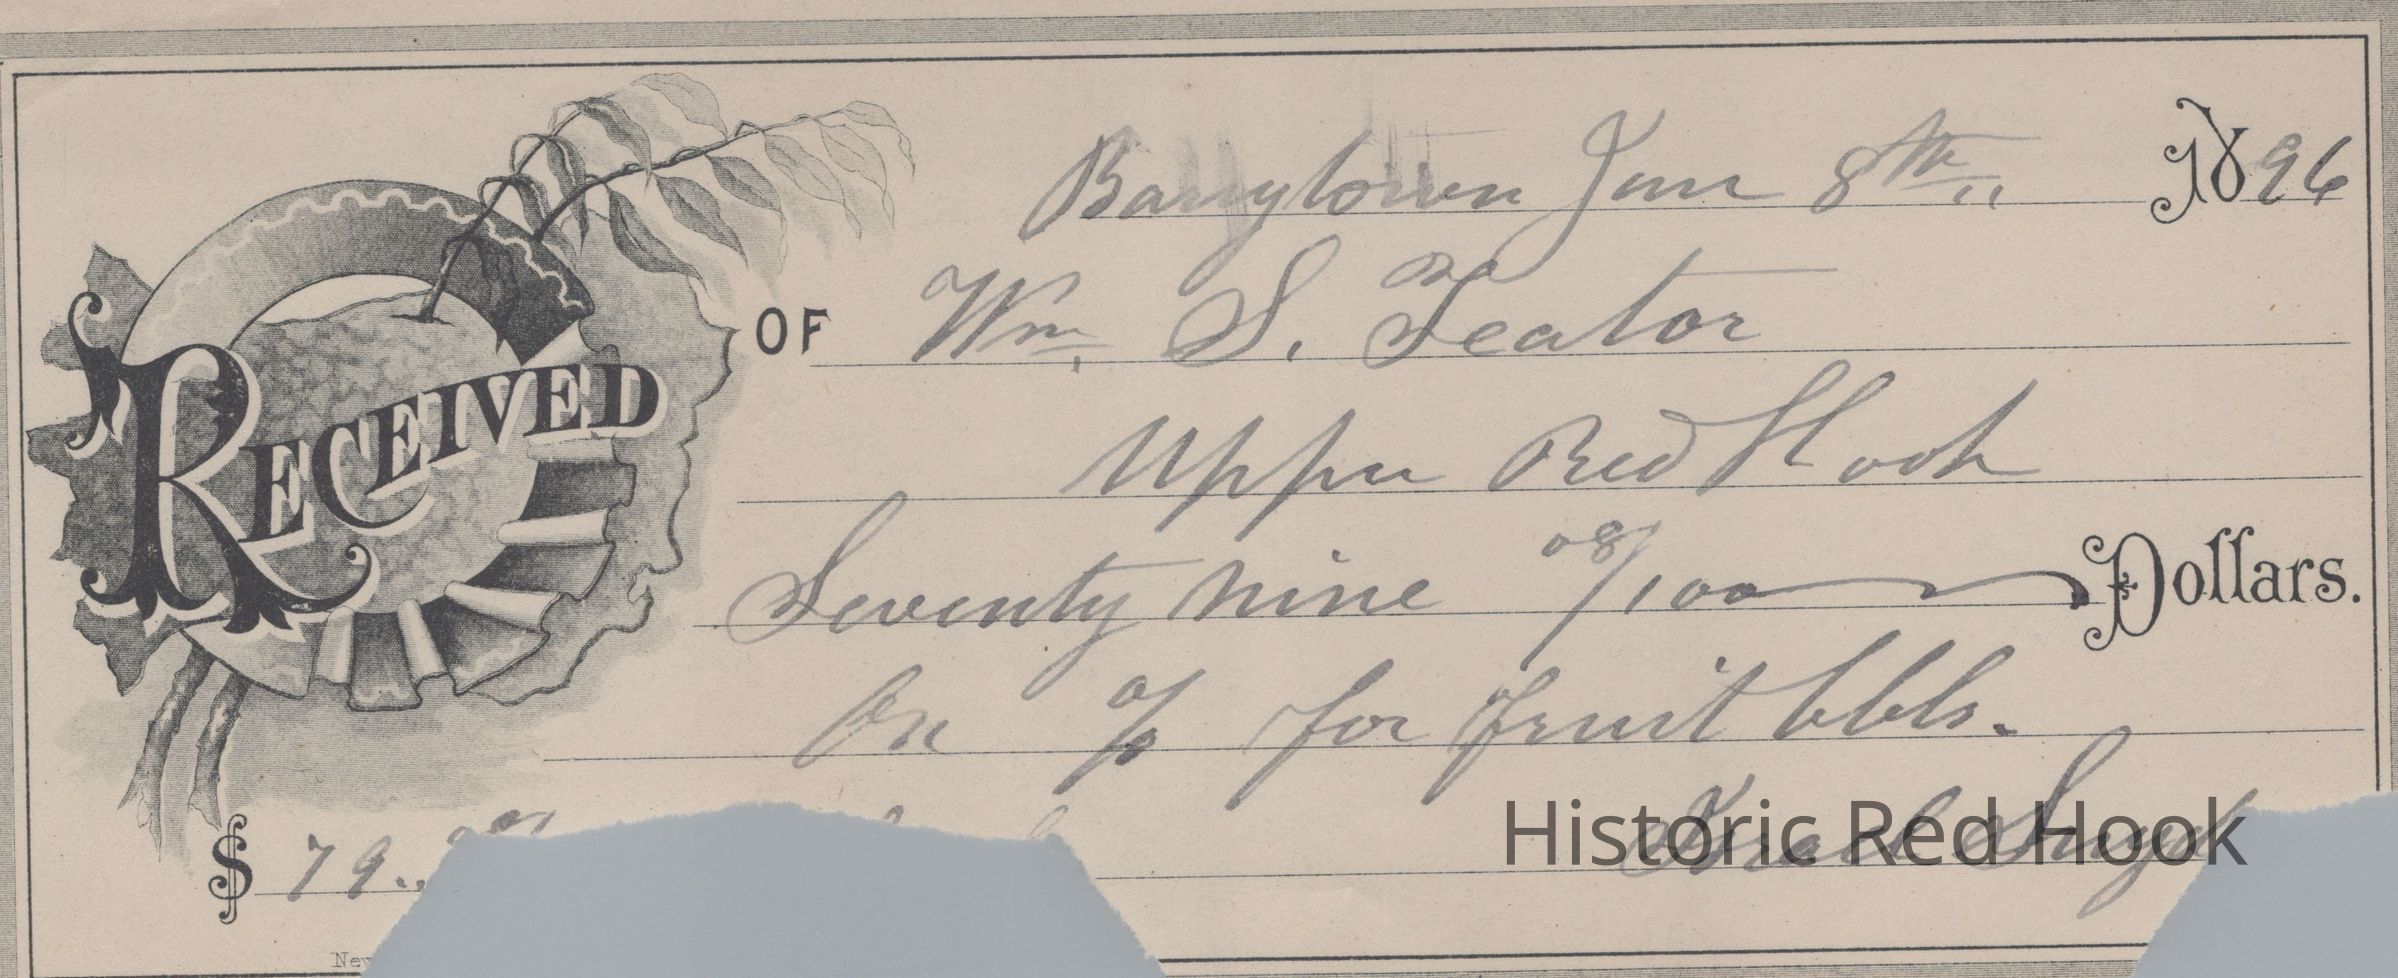 Barrytown Jan 8th 1896
RECEIVED OF Wm. S. Teator
Upper Red Hook
Seventy nine 08/100 Dollars.
On a/c for fruit bbls.
$ 79.
Historic Red Hook